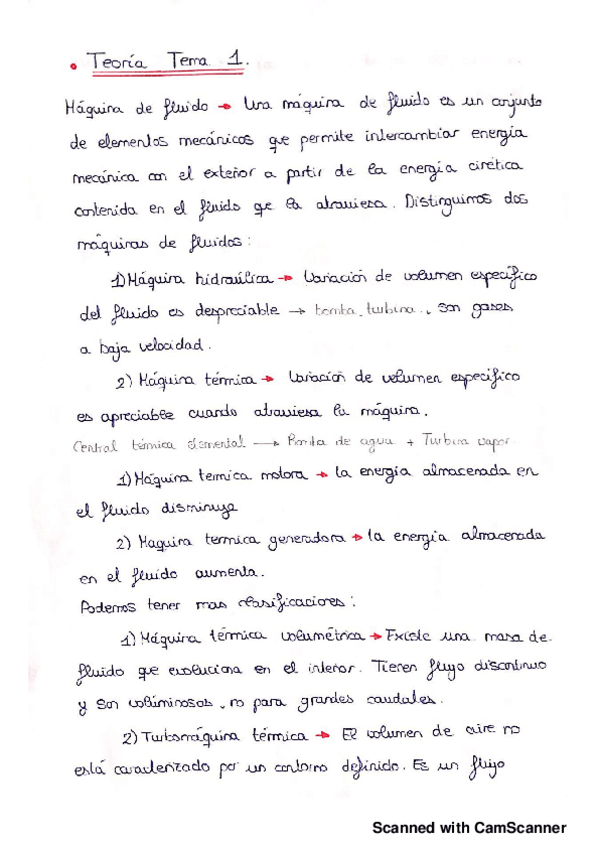 • Teoría Tema 1.
Máquina de fluido → Una máquina de fluido es un conjunto
de elementos mecánicos que permite intercambiar energía
mecánica con el exterior a partir de la energía cinética
contenida en el fluido que la atraviesa. Distinguimos dos
máquinas de fluidos:
1) Máquina hidraúlica → Variación de volumen específico
del fluido es despreciable → bomba, turbina, son gases
a baja velocidad.
2) Máquina térmica → Variación de volumen específico
es apreciable cuando atraviesa la máquina.
Central térmica elemental → Bomba de agua + Turbina vapor
1) Máquina termica motora → la energía almacenada en
el fluido disminuye
2) Maquina termica generadora → la energía almacenada
en el fluido aumenta.
Podemos tener mas clasificaciones:
1) Máquina térmica volumétrica → Existe una masa de
fluido que evoluciona en el interior. Tienen flujo discontinuo
y son volúminosas, no para grandes caudales.
2) Turbomáquina térmica → El volumen de aire no
está caracterizado por un contorno definido. Es un flujo
Scanned with CamScanner